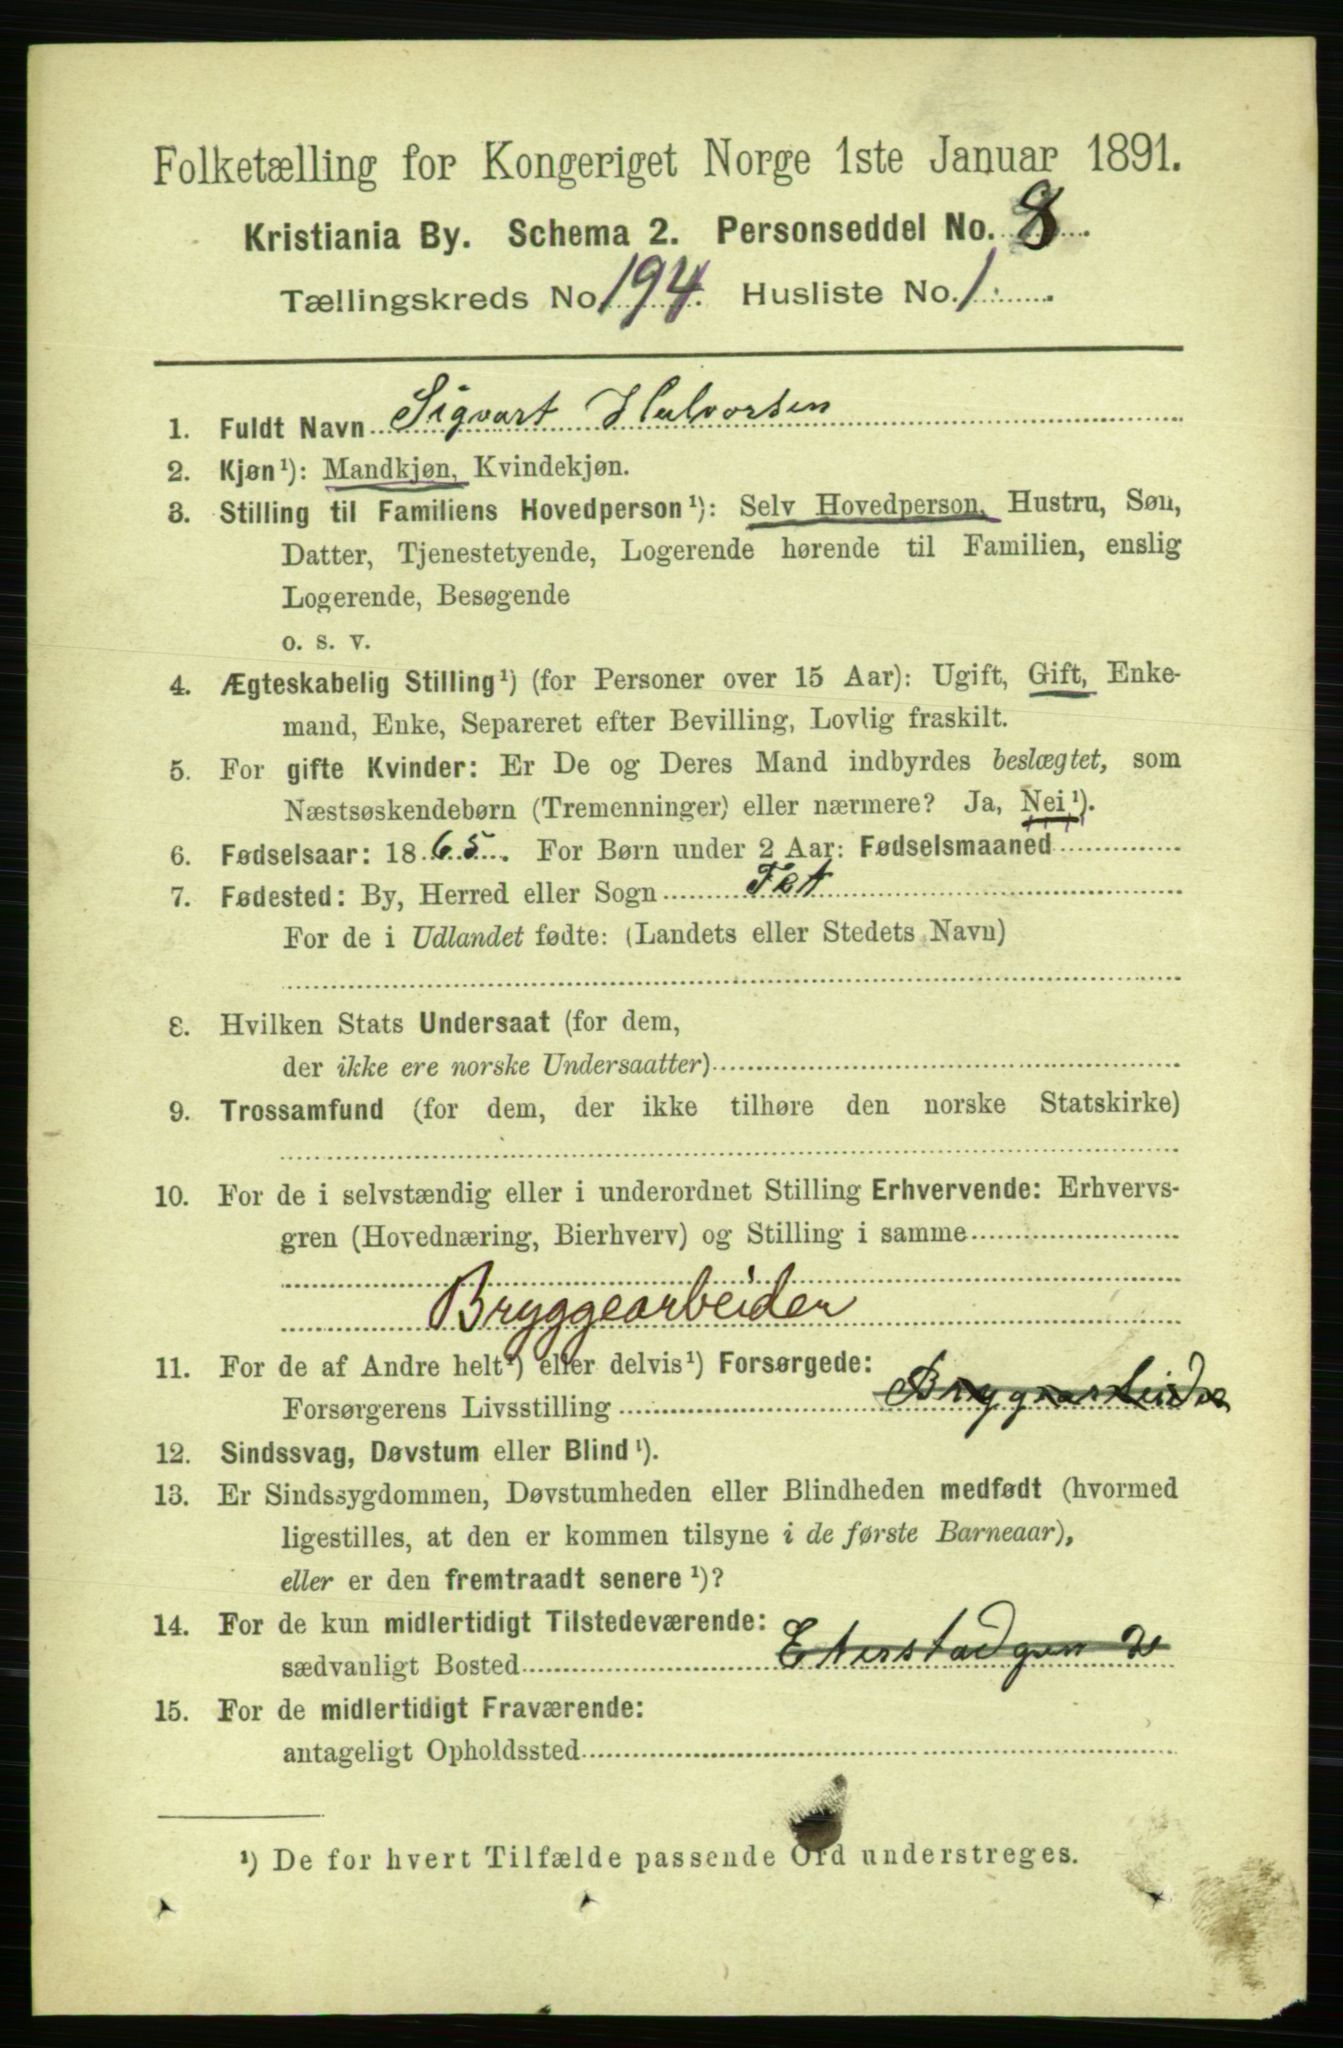 Folketælling for Kongeriget Norge 1ste Januar 1891.
Kristiania By. Schema 2. Personseddel No. 8.
Tællingskreds No. 194. Husliste No. 1.
1. Fuldt Navn Sigvart Halvorsen
2. Kjøn¹): Mandkjøn, Kvindekjøn.
3. Stilling til Familiens Hovedperson¹): Selv Hovedperson, Hustru, Søn,
Datter, Tjenestetyende, Logerende hørende til Familien, enslig
Logerende, Besøgende
o. s. v.
4. Ægteskabelig Stilling¹) (for Personer over 15 Aar): Ugift, Gift, Enke-
mand, Enke, Separeret efter Bevilling, Lovlig fraskilt.
5. For gifte Kvinder: Er De og Deres Mand indbyrdes beslægtet, som
Næstsøskendebørn (Tremenninger) eller nærmere? Ja, Nei¹).
6. Fødselsaar: 1865. For Børn under 2 Aar: Fødselsmaaned
7. Fødested: By, Herred eller Sogn Fet
For de i Udlandet fødte: (Landets eller Stedets Navn)
8. Hvilken Stats Undersaat (for dem,
der ikke ere norske Undersaatter)
9. Trossamfund (for dem, der ikke tilhøre den norske Statskirke)
10. For de i selvstændig eller i underordnet Stilling Erhvervende: Erhvervs-
gren (Hovednæring, Bierhverv) og Stilling i samme
Bryggearbeider
11. For de af Andre helt¹) eller delvis¹) Forsørgede:
Forsørgerens Livsstilling
12. Sindssvag, Døvstum eller Blind¹).
13. Er Sindssygdommen, Døvstumheden eller Blindheden medfødt (hvormed
ligestilles, at den er kommen tilsyne i de første Barneaar),
eller er den fremtraadt senere¹)?
14. For de kun midlertidigt Tilstedeværende:
sædvanligt Bosted
15. For de midlertidigt Fraværende:
antageligt Opholdssted
¹) De for hvert Tilfælde passende Ord understreges.